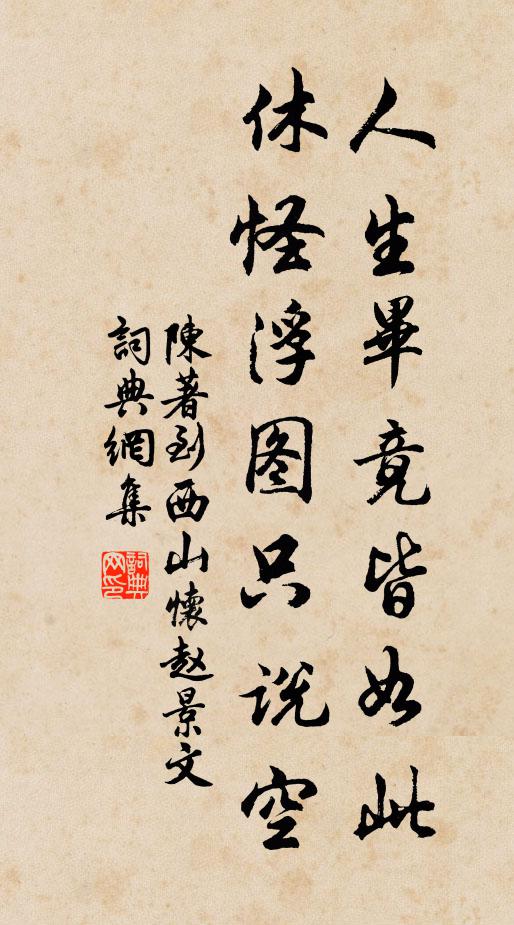 人生畢竟皆如此
休怪浮图只说空
陳著到西山懷赵景文
詞典網集
詞典
网印